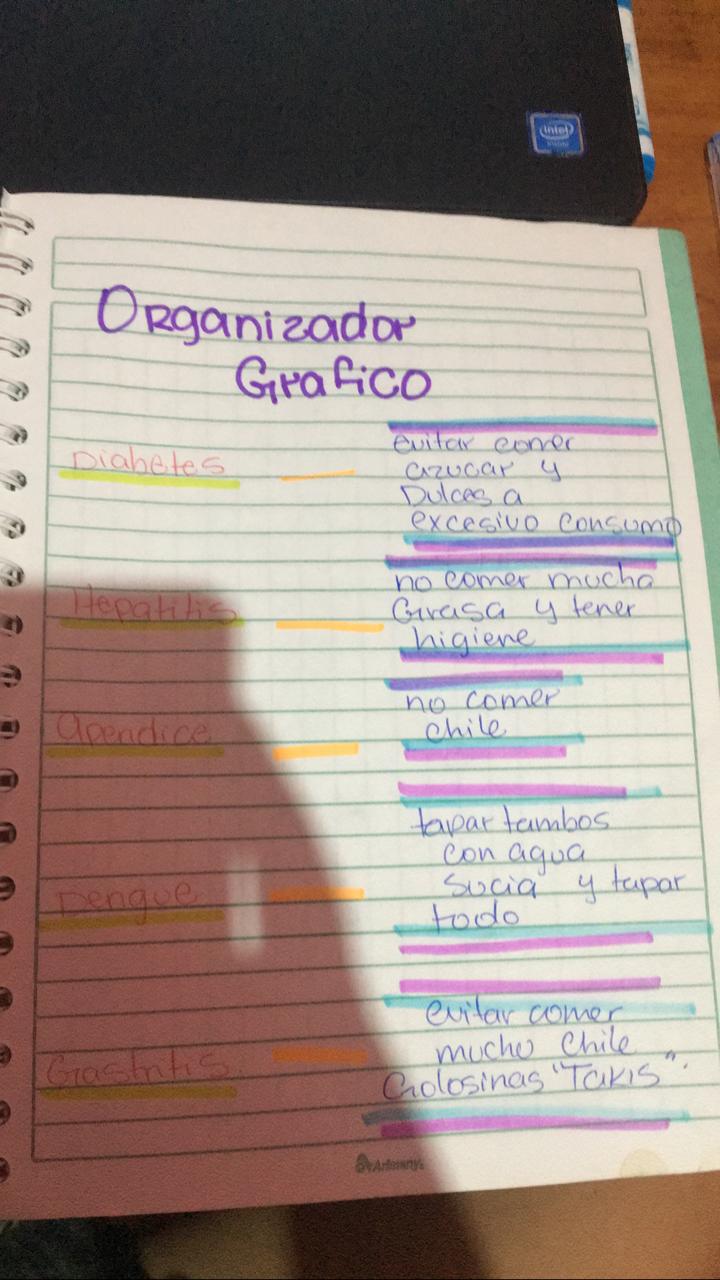 intel
Organizador
Grafico
Diabetes
evitar comer
azucar y
Dulces a
excesivo consumo
Hepatitis
no comer mucha
Grasa y tener
higiene
apendice
no comer
chile
Dengue
tapar tambos
con agua
sucia y tapar
todo
Gastritis
evitar comer
mucho chile
Golosinas "Takis".